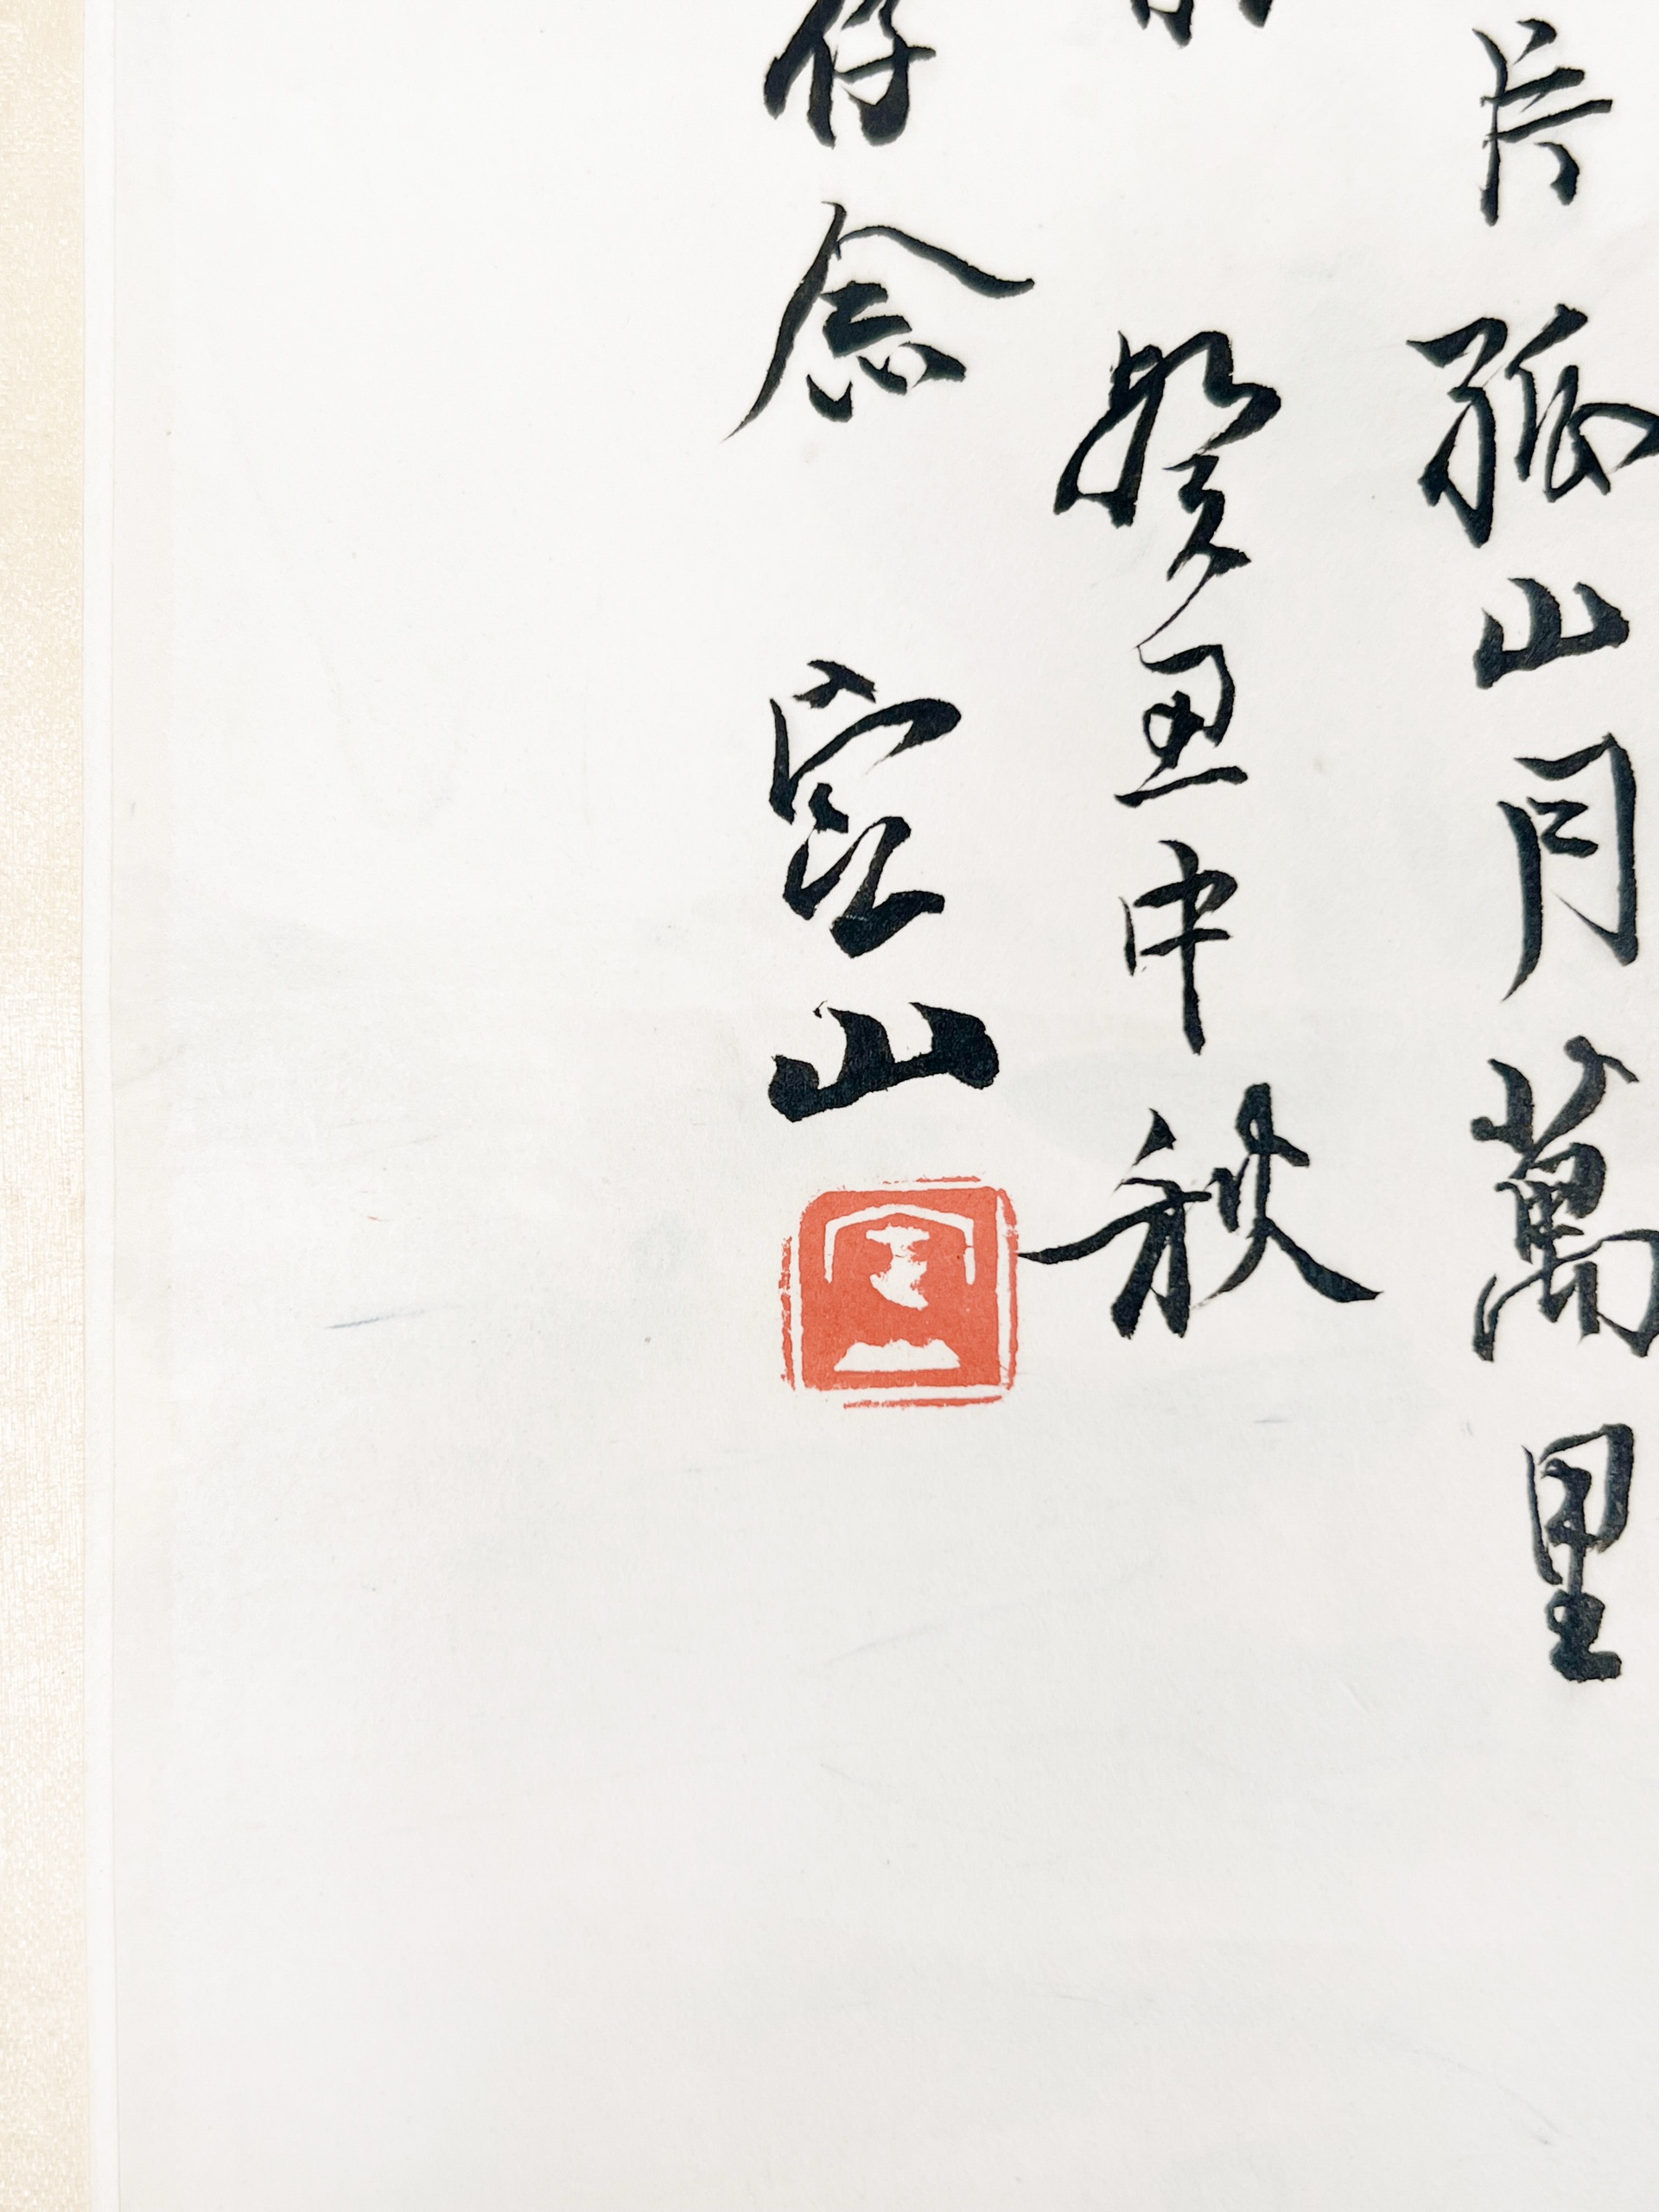 片孤山月萬里
癸丑中秋
存念 空山